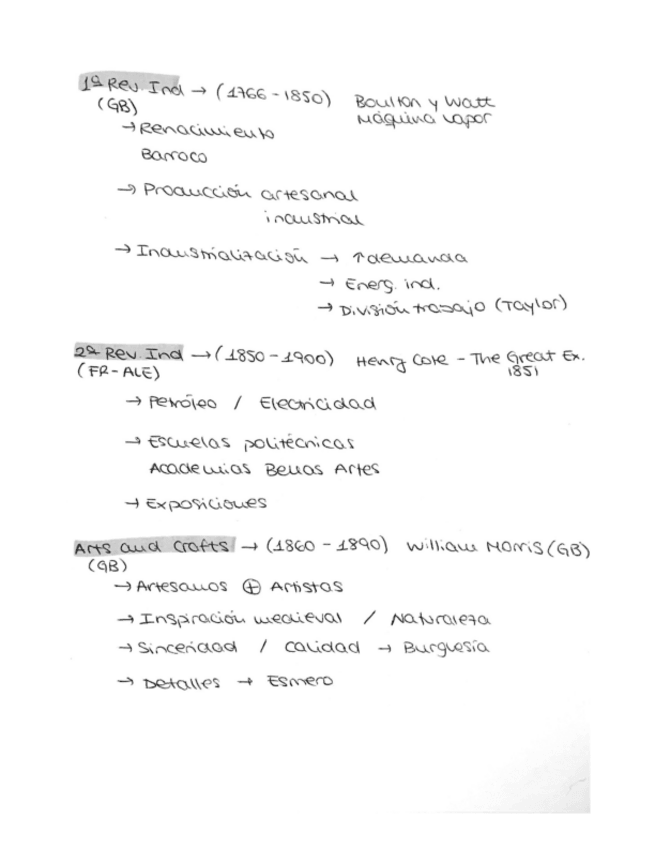 1ª Rev. Ind → (1766 - 1850) Boulton y Watt
(GB) Máquina vapor
→ Renacimiento
Barroco
→ Producción artesanal
industrial
→ Industrialización → ↑demanda
→ Energ. ind.
→ División trabajo (Taylor)
2ª Rev. Ind → (1850 - 1900) Henry Cole - The Great Ex.
(FR - ALE) 1851
→ Petróleo / Electricidad
→ Escuelas politécnicas
Academias Bellas Artes
→ Exposiciones
Arts and Crofts → (1860 - 1890) William Morris (GB)
(GB)
→ Artesanos ⊕ Artistas
→ Inspiración medieval / Naturaleza
→ Sinceridad / Calidad → Burguesía
→ Detalles → Esmero